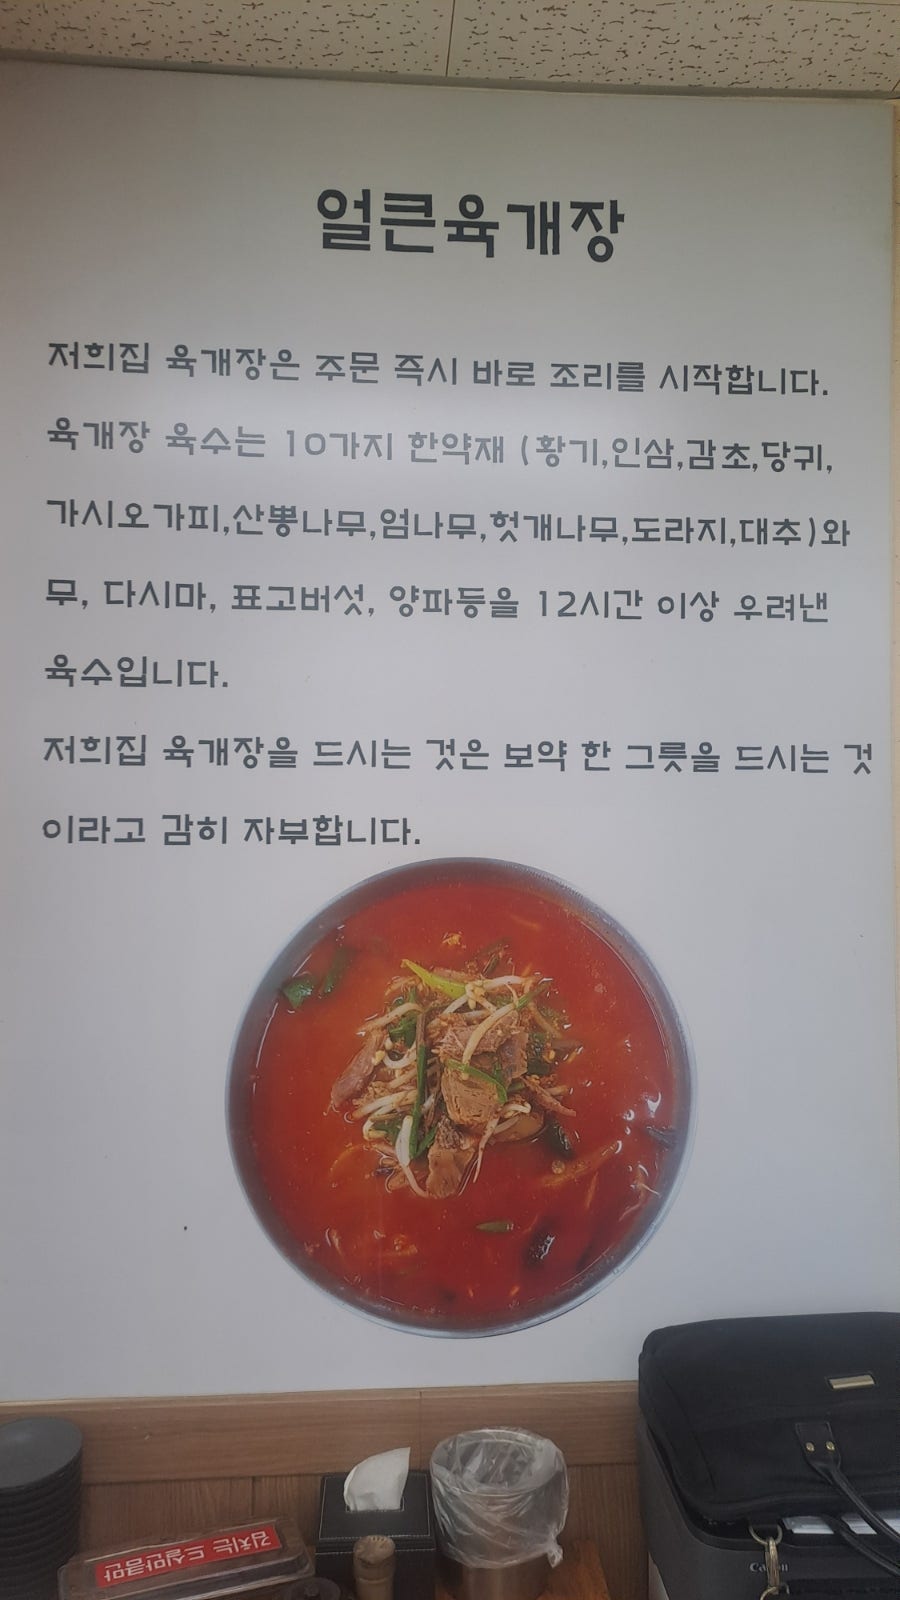 얼큰육개장
저희집 육개장은 주문 즉시 바로 조리를 시작합니다.
육개장 육수는 10가지 한약재 (황기,인삼,감초,당귀,
가시오가피,산뽕나무,엄나무,헛개나무,도라지,대추)와
무, 다시마, 표고버섯, 양파등을 12시간 이상 우려낸
육수입니다.
저희집 육개장을 드시는 것은 보약 한 그릇을 드시는 것
이라고 감히 자부합니다.
김치는 드실만큼만
Canon